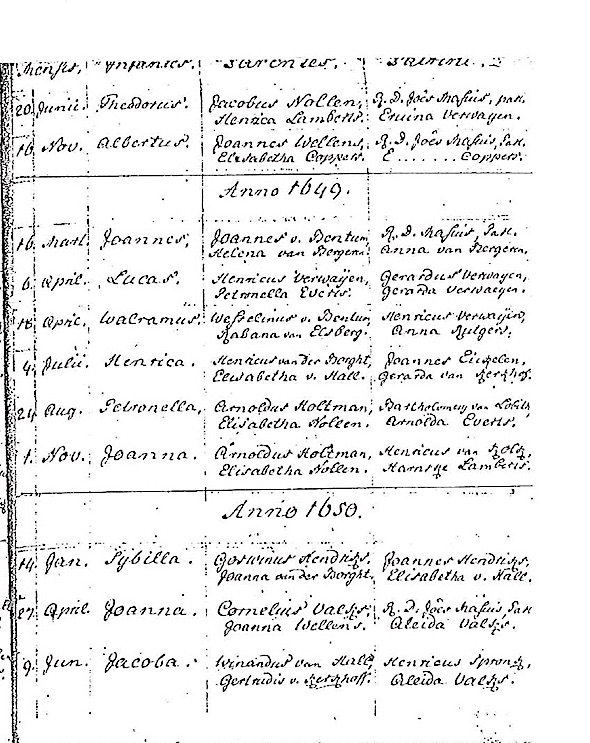 Mensis, Infantis, Parentes, Patrini.
20 Junii. Theodorus. Jacobus Nollen, R. D. Joës Masius, past.
Henrica Lamberts. Eruina Verwayen.
16 Nov. Albertus. Joannes Wellens, R. D. Joës Masius, Past.
Elisabetha Coppers. E. . . . . . . . Coppers.
Anno 1649.
16 Mart. Joannes, Joannes v. Bentum, R. D. Masius, Past.
Helena van Bergena. Anna van Bergena.
6. April. Lucas. Henricus Verwaijen, Gerardus Verwayen,
Petronella Everts. Gerarda Verwaeyen.
18. April. Walramus. Wesselinus v. Bentum, Henricus Verwaijen,
Rabana van Elsberg. Anna Rutgers.
4. Julii. Henrica. Henricus van der Borght, Joannes
Elisabetha v. Hall. Gerarda van Kerkhof.
24 Aug. Petronella, Arnoldus Holtman, Bartholomeus van Lobith,
Elisabetha Nollen. Arnolda Everts.
1. Nov. Joanna. Arnoldus Holtman, Henricus van
Elisabetha Nollen. Lamberts.
Anno 1650.
14. Jan. Sybilla. Goswinus Hendriks. Joannes Hendriks,
Joanna van der Borght. Elisabetha v. Hall.
27. April. Joanna. Cornelius Valks. R. D. Joës Masius Past.
Joanna Wellens. Aleida Valks.
9. Jun. Jacoba. Winandus van Hall, Henricus Spronk,
Gertrudis v. Kerkhoff. Aleida Valks.